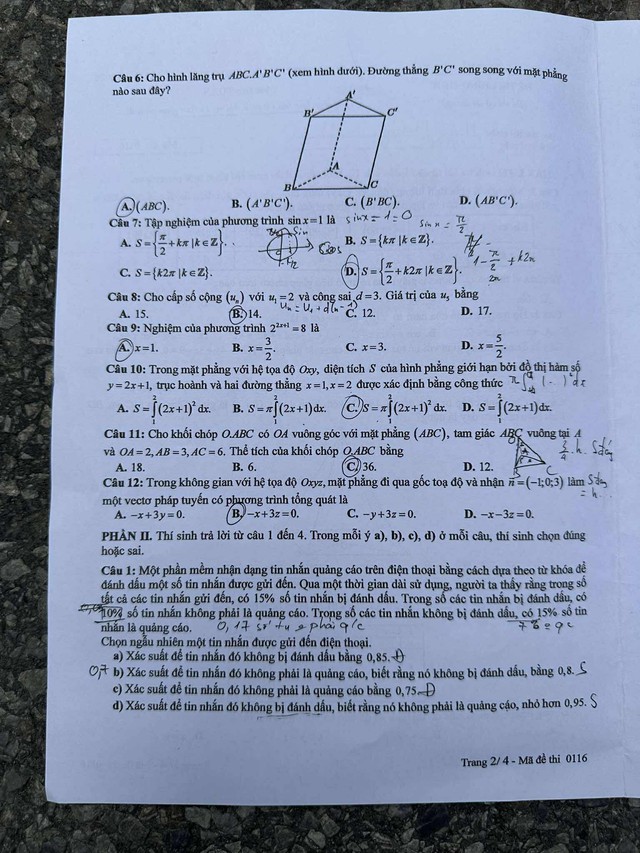 Câu 6: Cho hình lăng trụ ABC.A'B'C' (xem hình dưới). Đường thẳng B'C' song song với mặt phẳng
nào sau đây?
A'
B'
C'
A
B
C
A. (ABC). B. (A'B'C'). C. (B'BC). D. (AB'C').
Câu 7: Tập nghiệm của phương trình sin x = 1 là sin x = 1 = 0 sin x = π/2
A. S = {π/2 + kπ | k ∈ ℤ}. sin cos B. S = {kπ | k ∈ ℤ}.
C. S = {k2π | k ∈ ℤ}. D. S = {π/2 + k2π | k ∈ ℤ}. + k2π
Câu 8: Cho cấp số cộng (uₙ) với u₁ = 2 và công sai d = 3. Giá trị của u₅ bằng
uₙ = u₁ + d(n-1)
A. 15. B. 14. C. 12. D. 17.
Câu 9: Nghiệm của phương trình 2²ˣ⁺¹ = 8 là
A. x = 1. B. x = 3/2. C. x = 3. D. x = 5/2.
Câu 10: Trong mặt phẳng với hệ tọa độ Oxy, diện tích S của hình phẳng giới hạn bởi đồ thị hàm số
y = 2x+1, trục hoành và hai đường thẳng x = 1, x = 2 được xác định bằng công thức
A. S = ∫₁²(2x+1)² dx. B. S = π∫₁²(2x+1)dx. C. S = π∫₁²(2x+1)² dx. D. S = ∫₁²(2x+1)dx.
Câu 11: Cho khối chóp O.ABC có OA vuông góc với mặt phẳng (ABC), tam giác ABC vuông tại A
và OA = 2, AB = 3, AC = 6. Thể tích của khối chóp O.ABC bằng
A. 18. B. 6. C. 36. D. 12.
Câu 12: Trong không gian với hệ tọa độ Oxyz, mặt phẳng đi qua gốc toạ độ và nhận n⃗ = (−1;0;3) làm
một vectơ pháp tuyến có phương trình tổng quát là
A. −x+3y = 0. B. −x+3z = 0. C. −y+3z = 0. D. −x−3z = 0.
PHẦN II. Thí sinh trả lời từ câu 1 đến 4. Trong mỗi ý a), b), c), d) ở mỗi câu, thí sinh chọn đúng
hoặc sai.
Câu 1: Một phần mềm nhận dạng tin nhắn quảng cáo trên điện thoại bằng cách dựa theo từ khóa để
đánh dấu một số tin nhắn được gửi đến. Qua một thời gian dài sử dụng, người ta thấy rằng trong số
tất cả các tin nhắn gửi đến, có 15% số tin nhắn bị đánh dấu. Trong số các tin nhắn bị đánh dấu, có
10% số tin nhắn không phải là quảng cáo. Trong số các tin nhắn không bị đánh dấu, có 15% số tin
nhắn là quảng cáo.
Chọn ngẫu nhiên một tin nhắn được gửi đến điện thoại.
a) Xác suất để tin nhắn đó không bị đánh dấu bằng 0,85. Đ
0,7 b) Xác suất để tin nhắn đó không phải là quảng cáo, biết rằng nó không bị đánh dấu, bằng 0,8. S
c) Xác suất để tin nhắn đó không phải là quảng cáo bằng 0,75. Đ
d) Xác suất để tin nhắn đó không bị đánh dấu, biết rằng nó không phải là quảng cáo, nhỏ hơn 0,95. S
Trang 2/ 4 - Mã đề thi 0116